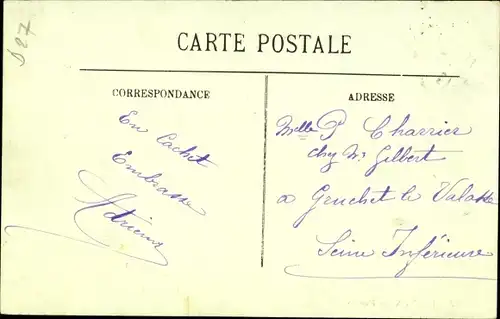 D27
CARTE POSTALE
CORRESPONDANCE
En Cachet
Embrasse
Adrienne
ADRESSE
Melle P Charrier
chez Mr Gilbert
a Gruchet le Valasse
Seine Inférieure